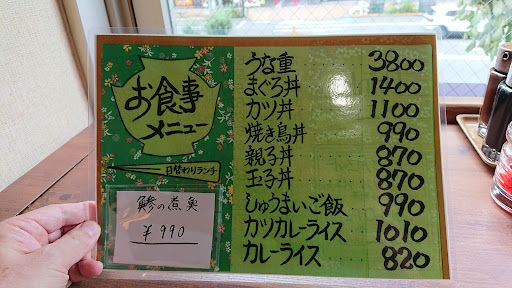 お食事
メニュー
日替わりランチ
鯵の煮魚
¥990
うな重 3800
まぐろ丼 1400
カツ丼 1100
焼き鳥丼 990
親子丼 870
玉子丼 870
しゅうまいご飯 990
カツカレーライス 1010
カレーライス 820